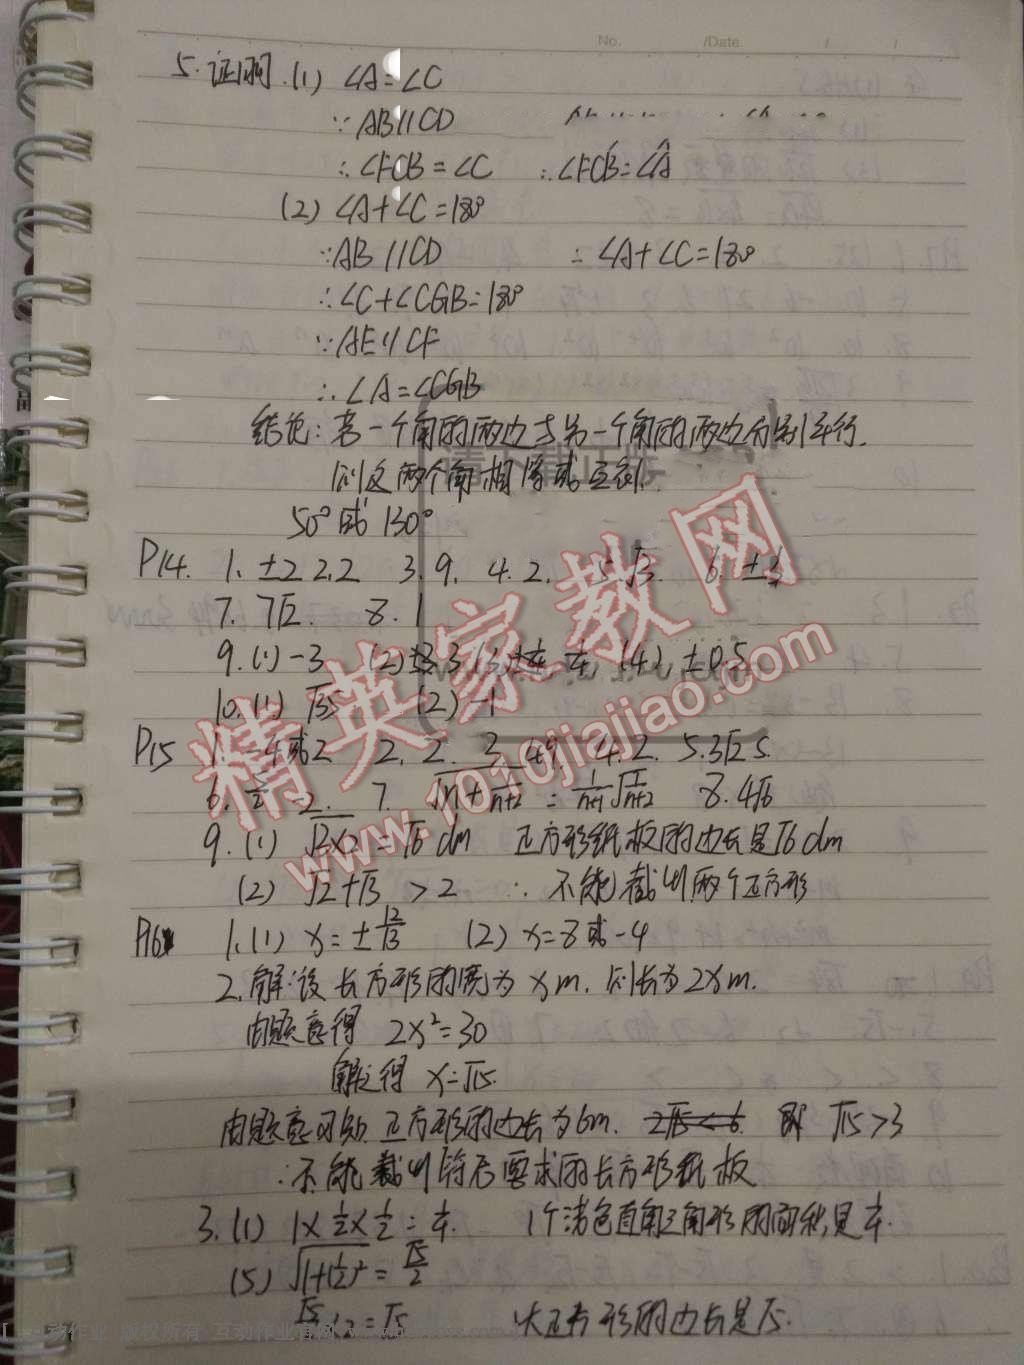 No. /Date / /
5. 证明. (1) ∠A=∠C
∵ AB∥CD
∴ ∠FCB=∠C ∴∠FCB=∠A
(2) ∠A+∠C=180°
∵AB∥CD ∴ ∠A+∠C=180°
∴∠C+∠CGB=180°
∵AE∥CF
∴∠A=∠CGB
结论: 若一个角的两边与另一个角的两边分别平行,
则这两个角相等或互补.
50°或130°
P14. 1. ±2 2.2 3.9. 4.2. 5.√3. 6.
7. 7√2. 8.1
9.(1)-3 (4) ±0.5
10.(1) √35 (2) -1
P15 1. -4或2 2. 2. 3. 49. 4.2. 5.3√2 5.
6. 7. 8. 4√6
9.(1) √6 dm 正方形纸板的边长是√6 dm
(2) √2+√3 >2 ∴ 不能截出两个正方形
P16 1.(1) x=± (2) x=8或-4
2. 解:设长方形的宽为xm. 则长为2xm.
由题意得 2x²=30
解得 x=√15.
由题意可知 正方形的边长为6m. 2√15<6. 即 √15>3
∴不能裁出符合要求的长方形纸板
3.(1) 1×1/2×1/2=1/4. 1个浅色直角三角形的面积是1/4.
(5) √(1+(1/2)²)=√5/2
√5/2×2=√5 大正方形的边长是√5.
精英家教网
www.1010jiajiao.com